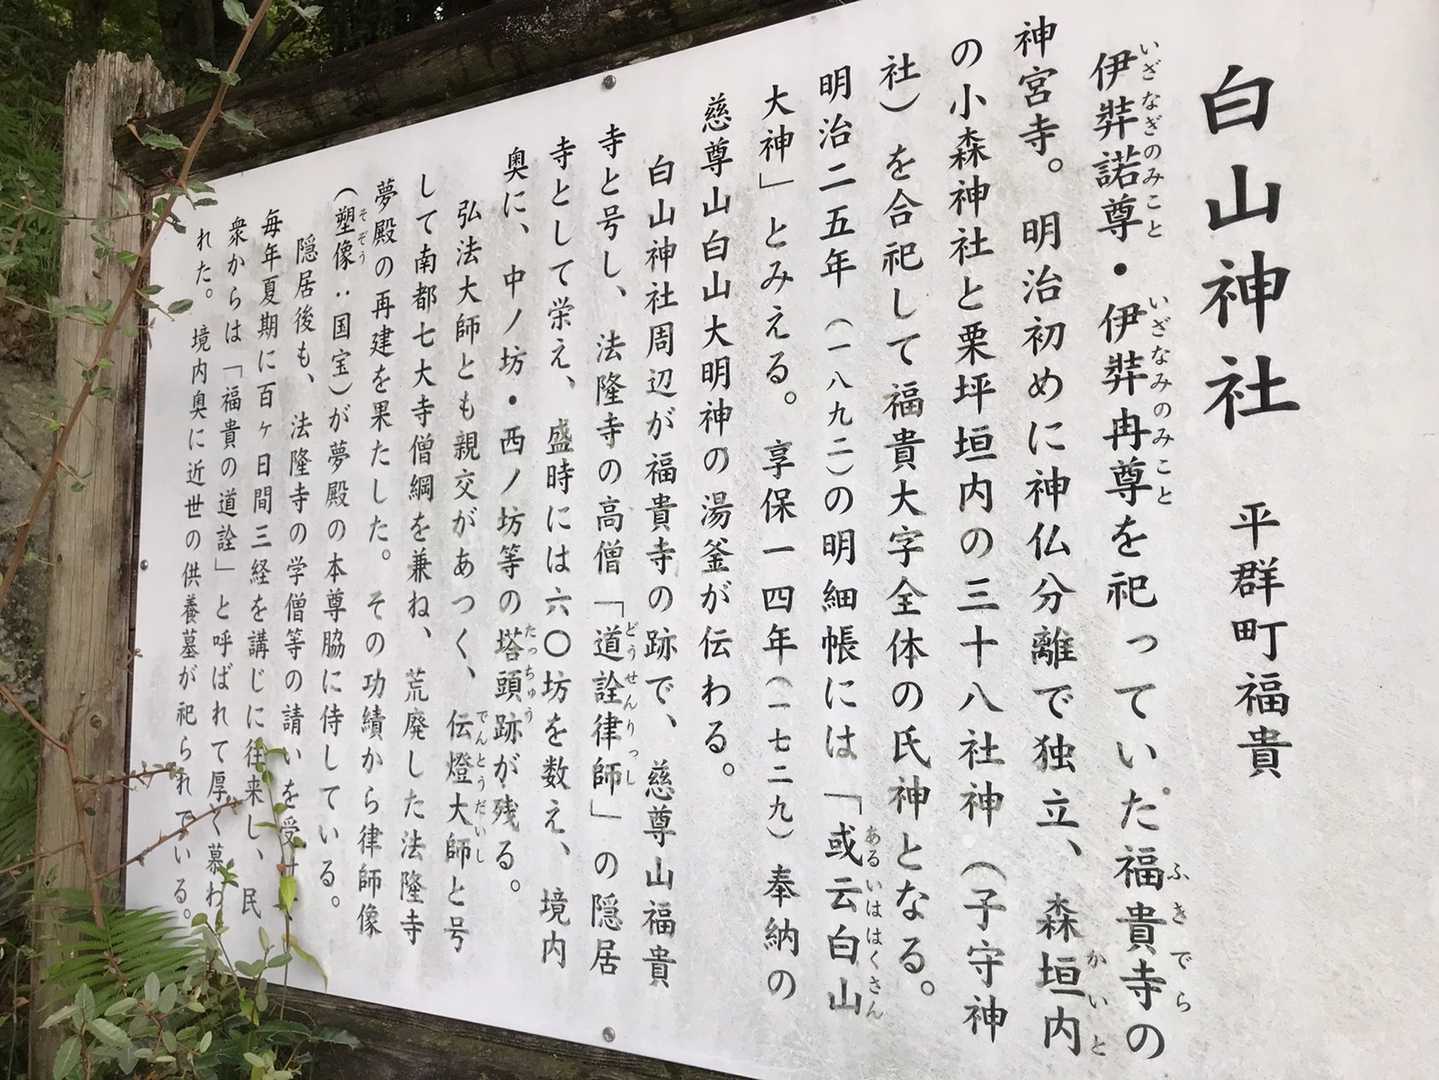 白山神社 平群町福貴
伊弉諾尊・伊弉冉尊を祀っていた福貴寺の
神宮寺。明治初めに神仏分離で独立、森垣内
の小森神社と栗坪垣内の三十八社神（子守神
社）を合祀して福貴大字全体の氏神となる。
明治二五年（一八九二）の明細帳には「或云白山
大神」とみえる。享保一四年（一七二九）奉納の
慈尊山白山大明神の湯釜が伝わる。
白山神社周辺が福貴寺の跡で、慈尊山福貴
寺と号し、法隆寺の高僧「道詮律師」の隠居
寺として栄え、盛時には六〇坊を数え、境内
奥に、中ノ坊・西ノ坊等の塔頭跡が残る。
弘法大師とも親交があつく、伝燈大師と号
して南都七大寺僧綱を兼ね、荒廃した法隆寺
夢殿の再建を果たした。その功績から律師像
（塑像：国宝）が夢殿の本尊脇に侍している。
隠居後も、法隆寺の学僧等の請いを受け
毎年夏期に百ヶ日間三経を講じに往来し、民
衆からは「福貴の道詮」と呼ばれて厚く慕わ
れた。境内奥に近世の供養墓が祀られている。